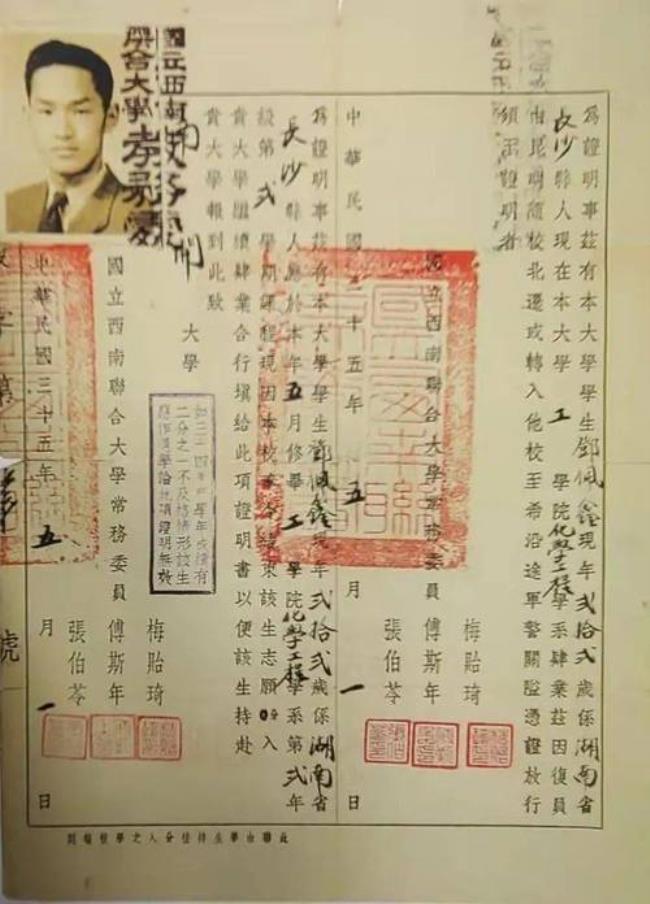 為證明事茲有本大學學生鄧佩鑫現年弍拾弍歲係湖南省
長沙縣人現在本大學工學院化學工程學系肄業茲因復員
由昆明隨校北遷或轉入他校至希沿途軍警關隘憑證放行
須至證明者
國立西南聯合大學常務委員
梅貽琦
傅斯年
張伯苓
中華民國三十五年五月一日
為證明事茲有本大學學生鄧佩鑫現年弍拾弍歲係湖南省
長沙縣人應於本年五月修畢工學院化學工程學系第弍年
級第弍學期課程現因本校結束該生志願分入
貴大學繼續肄業合行塡給此項證明書以便該生持赴
貴大學報到此致
南開大學
如三十四年度學年成績有
二分之一不及格情形該生
應作退學論此項證明無效
國立西南聯合大學常務委員
梅貽琦
傅斯年
張伯苓
中華民國三十五年五月一日
字第
號
國立西南
聯合大學
此聯由學生持往分入之學校報到